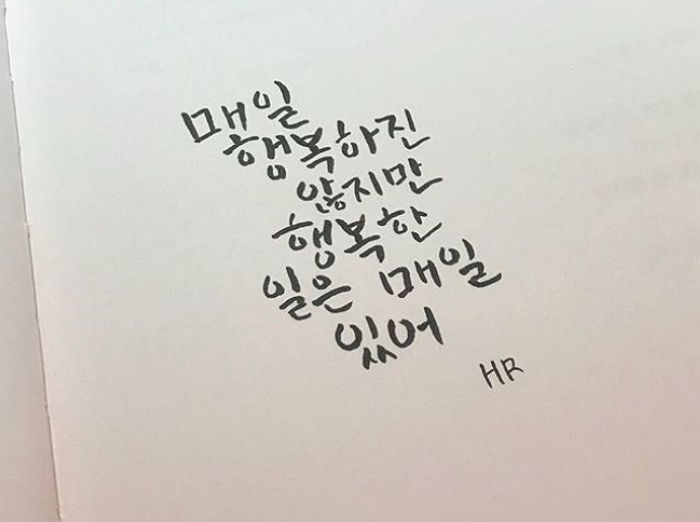 매일
행복하진
않지만
행복한
일은 매일
있어
HR